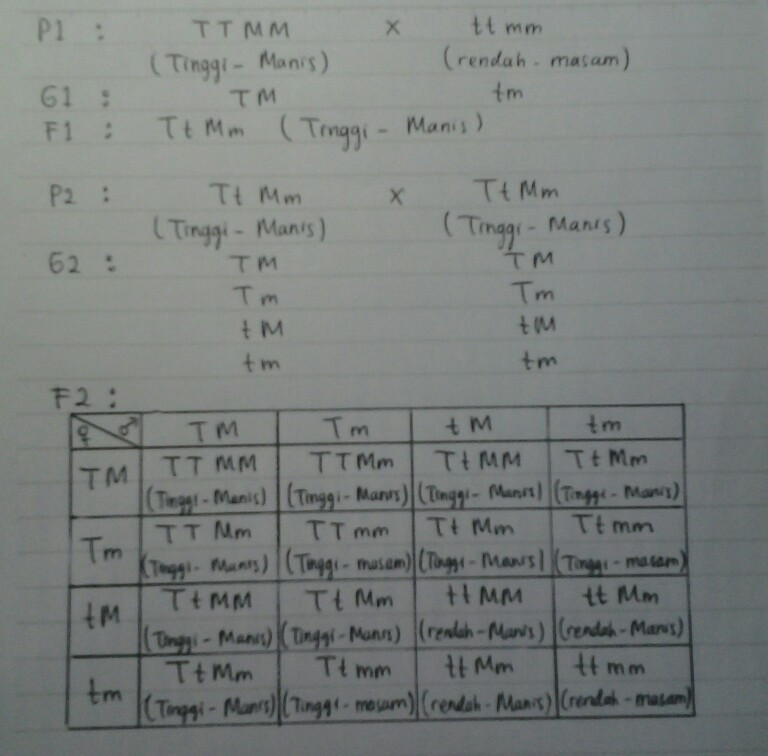 P1 : TTMM x ttmm
(Tinggi - Manis) (rendah - masam)
G1 : TM tm
F1 : TtMm (Tinggi - Manis)
P2 : TtMm x TtMm
(Tinggi - Manis) (Tinggi - Manis)
G2 : TM TM
Tm Tm
tM tM
tm tm
F2 :
♀ ♂ TM Tm tM tm
TM TTMM TTMm TtMM TtMm
(Tinggi - Manis) (Tinggi - Manis) (Tinggi - Manis) (Tinggi - Manis)
Tm TTMm TTmm TtMm Ttmm
(Tinggi - Manis) (Tinggi - masam) (Tinggi - Manis) (Tinggi - masam)
tM TtMM TtMm ttMM ttMm
(Tinggi - Manis) (Tinggi - Manis) (rendah - Manis) (rendah - Manis)
tm TtMm Ttmm ttMm ttmm
(Tinggi - Manis) (Tinggi - masam) (rendah - Manis) (rendah - masam)